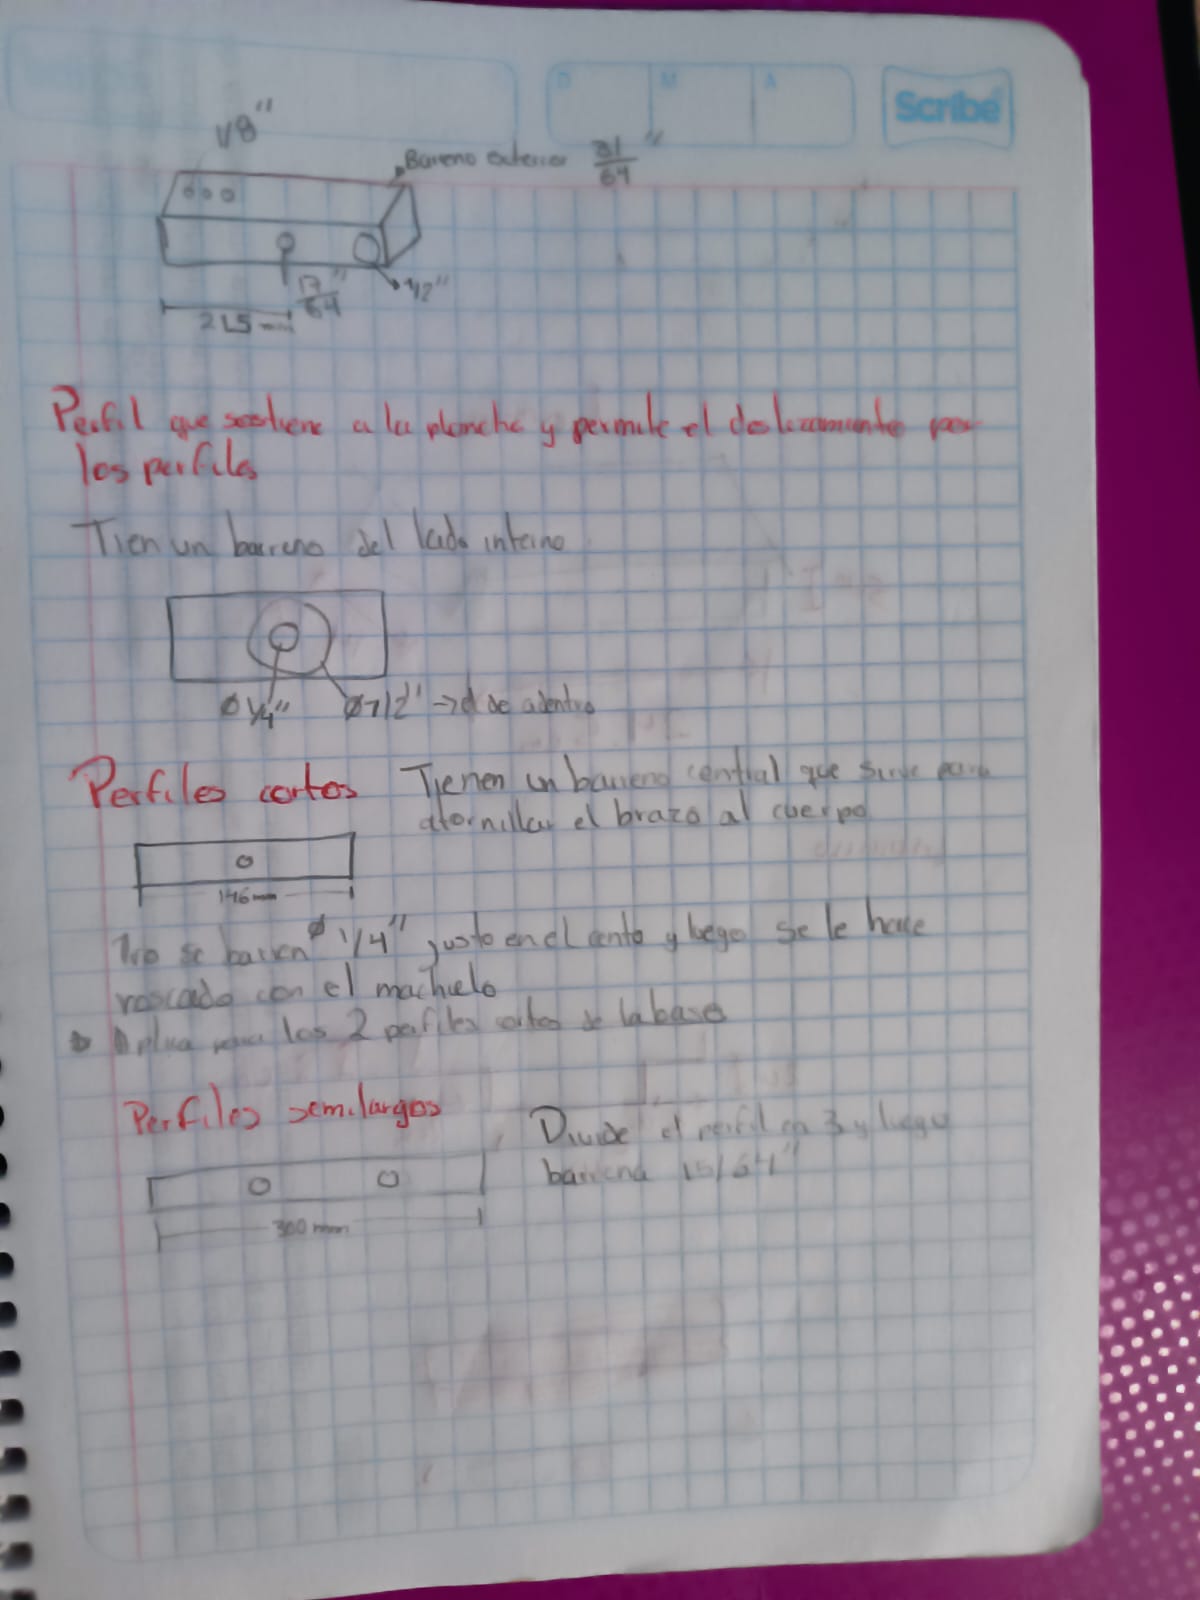 D M A
Scribe
1/8"
Barreno exterior 31/64"
17/64"
1/2"
215 mm
Perfil que sostiene a la plancha y permite el deslizamiento por
los perfiles
Tien un barreno del lado interno
Ø 1/4" Ø 1/2" → el de adentro
Perfiles cortos Tienen un barreno central que sirve para
atornillar el brazo al cuerpo
146 mm
se barren Ø 1/4" justo en el cento y luego se le hace
roscado con el machuelo
Aplica para los 2 perfiles cortos de la base
Perfiles semilargos
Divide el perfil en 3 y luego
barrena 15/64"
300 mm